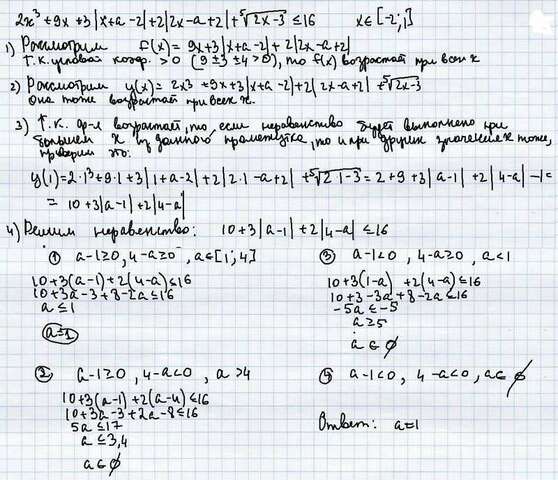 2x³+9x+3|x+a-2|+2|2x-a+2|+⁵√(2x-3) ≤16 x∈[-2;1]
1) Рассмотрим f(x)=9x+3|x+a-2|+2|2x-a+2|
Т.к. угловой коэф. >0 (9±3±4>0), то f(x) возрастает при всех x
2) Рассмотрим y(x)=2x3+9x+3|x+a-2|+2|2x-a+2|+⁵√(2x-3)
Она тоже возрастает при всех x.
3) Т.к. ф-я возрастает, то, если неравенство будет выполнено при
большем x из данного промежутка, то и при других значениях x тоже,
проверим это:
y(1)=2·1³+9·1+3|1+a-2|+2|2·1-a+2|+⁵√(2·1-3)=2+9+3|a-1|+2|4-a|-1=
=10+3|a-1|+2|4-a|
4) Решим неравенство: 10+3|a-1|+2|4-a|≤16
① a-1≥0, 4-a≥0, a∈[1;4]
10+3(a-1)+2(4-a)≤16
10+3a-3+8-2a≤16
a≤1
a=1
② a-1≥0, 4-a<0, a>4
10+3(a-1)+2(a-4)≤16
10+3a-3+2a-8≤16
5a≤17
a≤3,4
a∈∅
③ a-1<0, 4-a≥0, a<1
10+3(1-a)+2(4-a)≤16
10+3-3a+8-2a≤16
-5a≤-5
a≥5
a∈∅
④ a-1<0, 4-a<0, a∈∅
Ответ: a=1